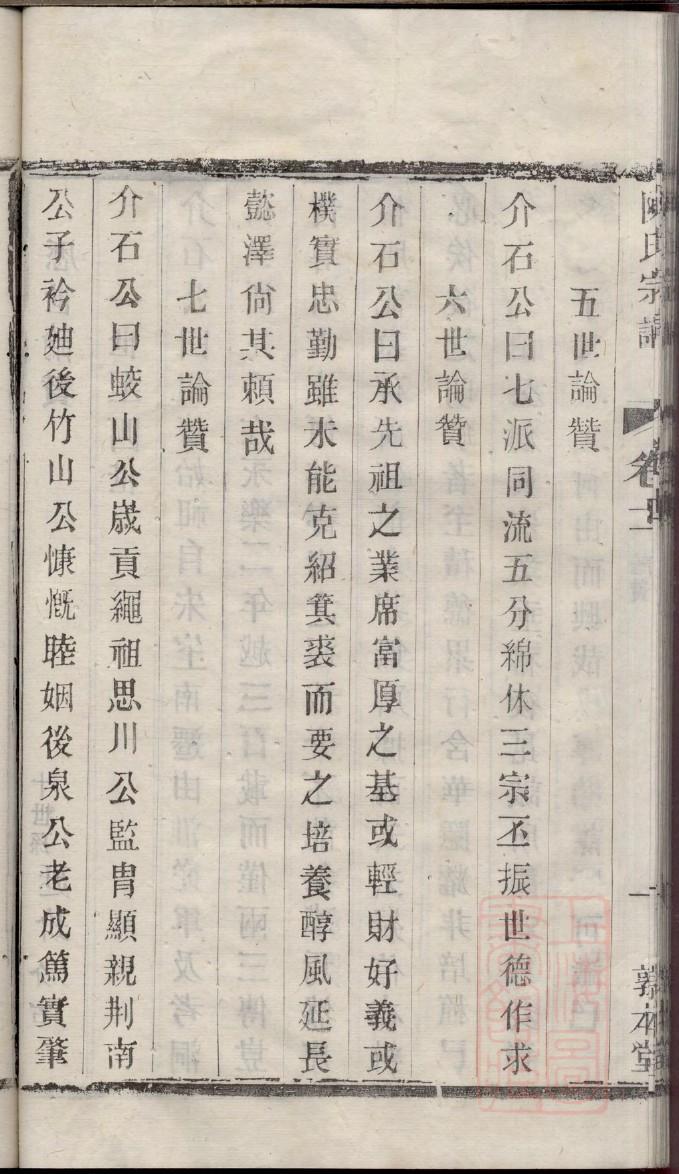 陳氏宗譜
卷十二
一
敦本堂
五世論贊
介石公曰七派同流五分綿休三宗丕振世德作求
六世論贊
介石公曰承先祖之業席富厚之基或輕財好義或
樸實忠勤雖未能克紹箕裘而要之培養醇風延長
懿澤尙其賴哉
七世論贊
介石公曰蛟山公歲貢繩祖思川公監胄顯親荆南
公子衿廸後竹山公慷慨睦姻後泉公老成篤實肇